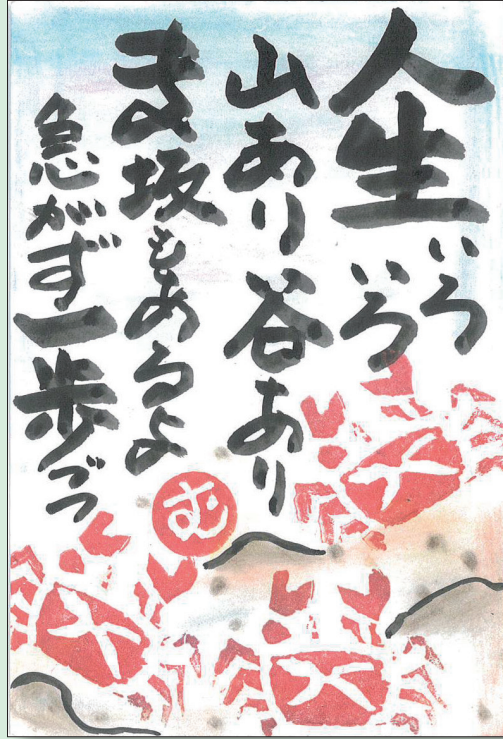 人生いろいろ
山あり谷あり
まさ坂もあるよ
急がず一歩づつ
む